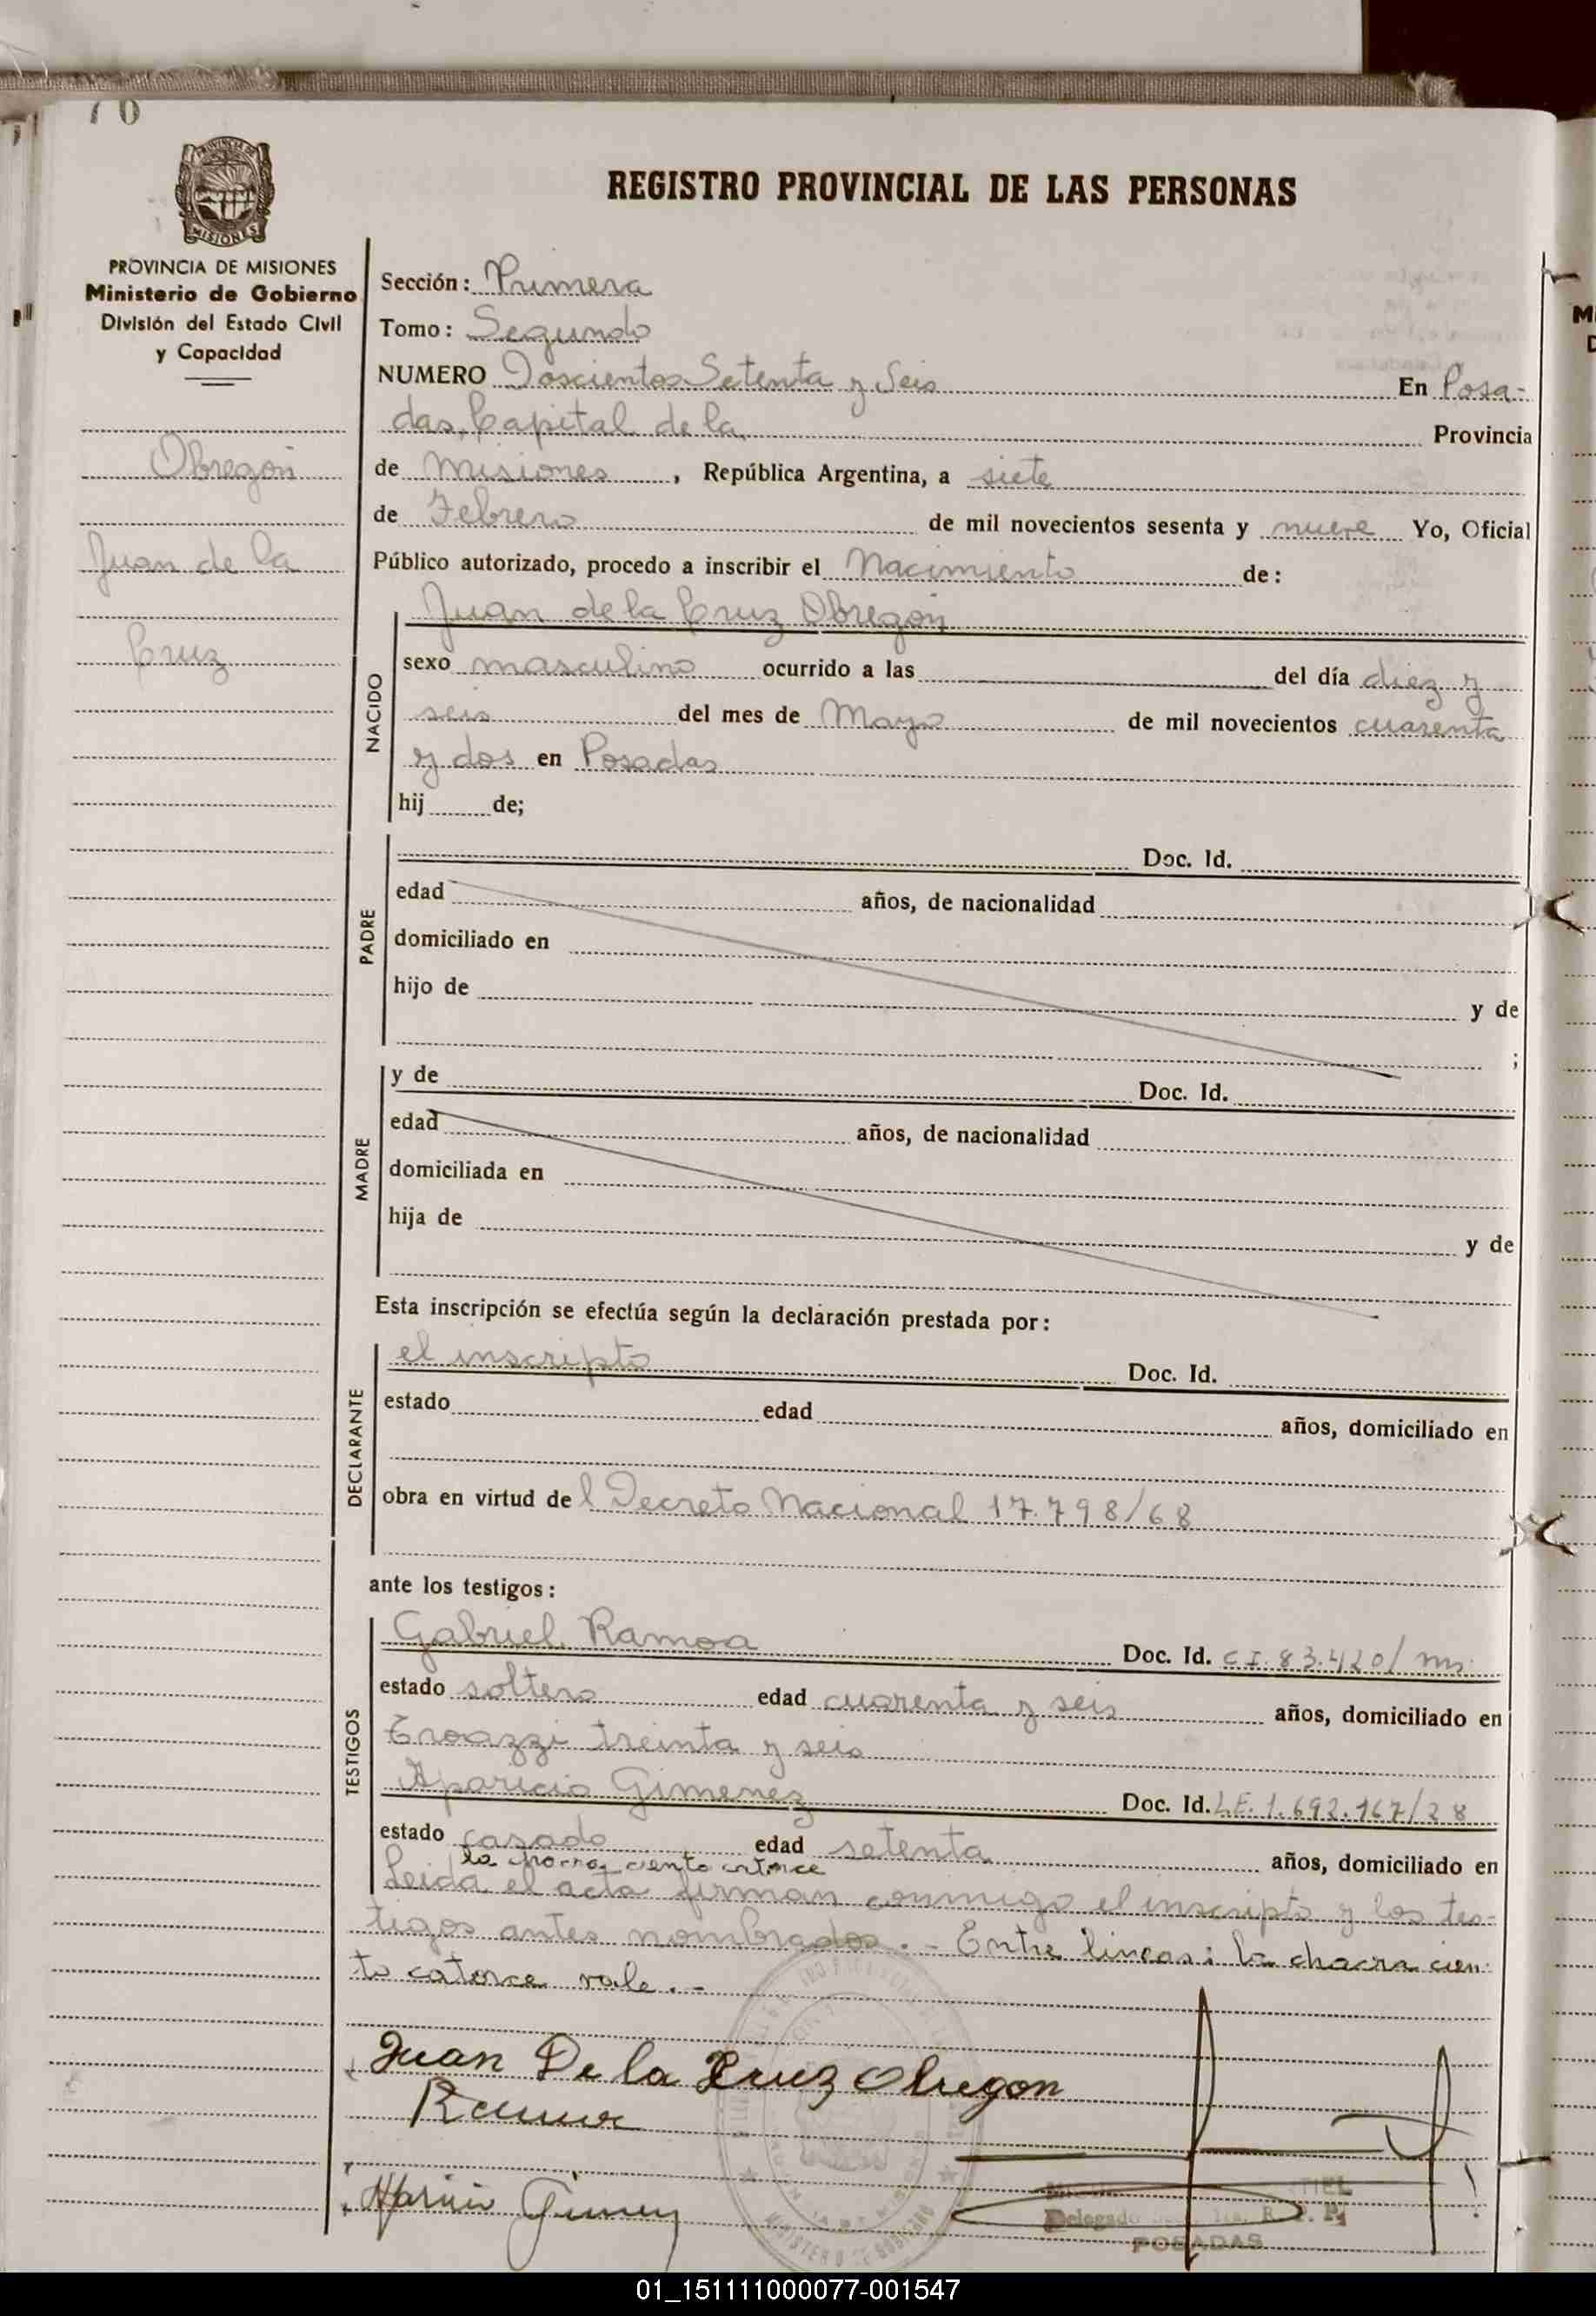 76
PROVINCIA DE MISIONES
Ministerio de Gobierno
División del Estado Civil
y Capacidad
Obregon
Juan de la
Cruz
REGISTRO PROVINCIAL DE LAS PERSONAS
Sección: Primera
Tomo: Segundo
NUMERO Doscientos Setenta y Seis En Posa-
das, Capital de la Provincia
de Misiones, República Argentina, a siete
de Febrero de mil novecientos sesenta y nueve Yo, Oficial
Público autorizado, procedo a inscribir el Nacimiento de:
NACIDO
Juan de la Cruz Obregon
sexo masculino ocurrido a las del día diez y
seis del mes de Mayo de mil novecientos cuarenta
y dos en Posadas
hij de;
PADRE
Doc. Id.
edad años, de nacionalidad
domiciliado en
hijo de y de
;
MADRE
y de Doc. Id.
edad años, de nacionalidad
domiciliada en
hija de y de
Esta inscripción se efectúa según la declaración prestada por:
DECLARANTE
el inscripto Doc. Id.
estado edad años, domiciliado en
obra en virtud del Decreto Nacional 17.798/68
ante los testigos:
TESTIGOS
Gabriel Ramoa Doc. Id. C I. 83.420/ms.
estado soltero edad cuarenta y seis años, domiciliado en
treinta y seis
Aparicio Gimenez Doc. Id. L.E. 1.692.167/28
estado casado edad setenta años, domiciliado en
la chacra ciento catorce
Leida el acta firman conmigo el inscripto y los tes-
tigos antes nombrados.- Entre lineas: la chacra cien-
to catorce vale.-
Juan De la Cruz Obregon
Gimenez
Delegado R. P. P.
POSADAS
01_151111000077-001547